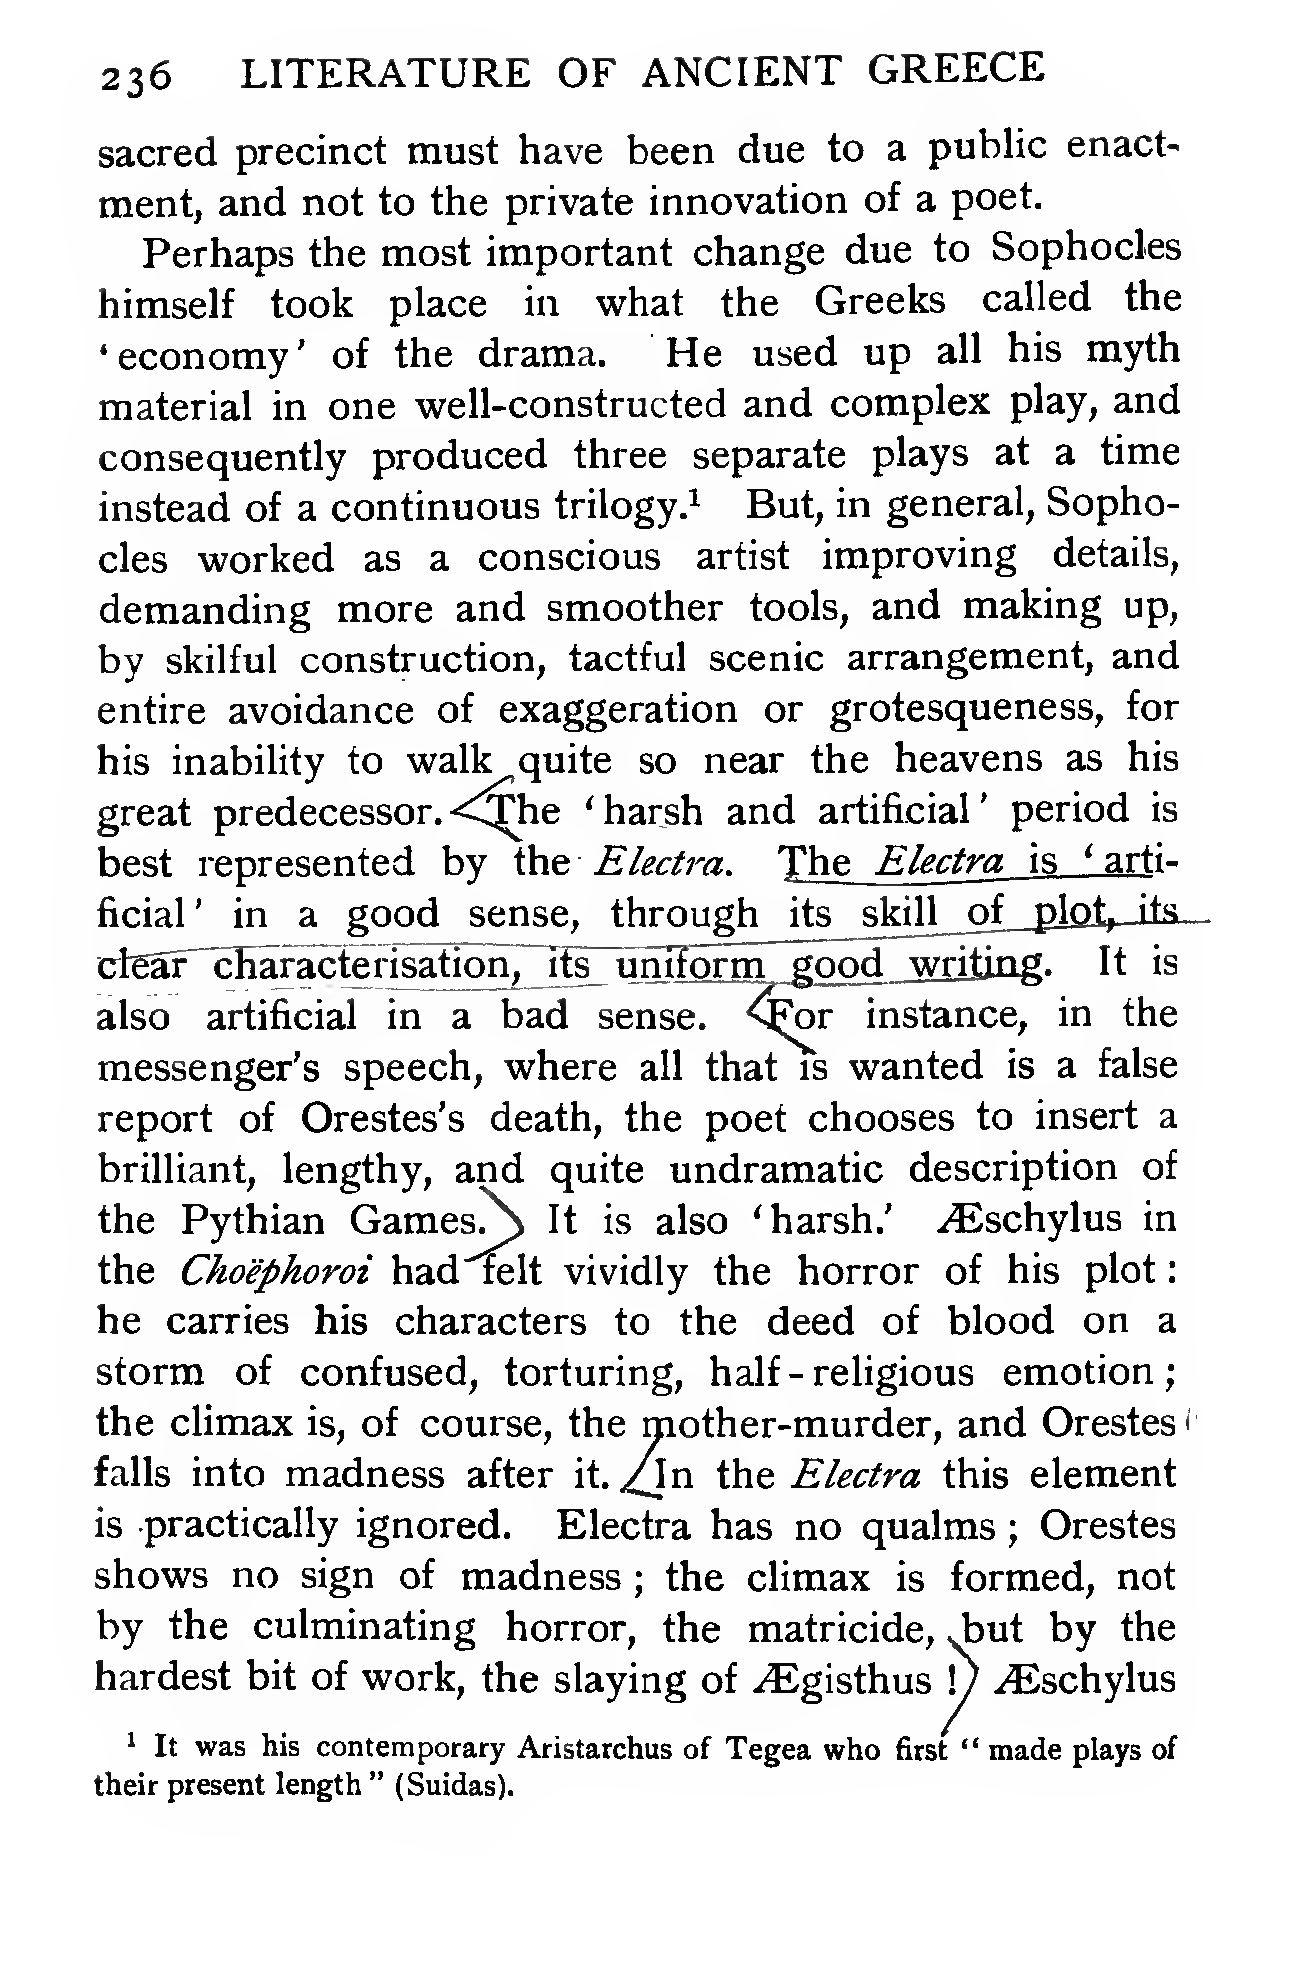 236 LITERATURE OF ANCIENT GREECE
sacred precinct must have been due to a public enact-
ment, and not to the private innovation of a poet.
Perhaps the most important change due to Sophocles
himself took place in what the Greeks called the
‘economy’ of the drama. He used up all his myth
material in one well-constructed and complex play, and
consequently produced three separate plays at a time
instead of a continuous trilogy.¹ But, in general, Sopho-
cles worked as a conscious artist improving details,
demanding more and smoother tools, and making up,
by skilful construction, tactful scenic arrangement, and
entire avoidance of exaggeration or grotesqueness, for
his inability to walk quite so near the heavens as his
great predecessor. The ‘harsh and artificial’ period is
best represented by the Electra. The Electra is ‘arti-
ficial’ in a good sense, through its skill of plot, its
clear characterisation, its uniform good writing. It is
also artificial in a bad sense. For instance, in the
messenger’s speech, where all that is wanted is a false
report of Orestes’s death, the poet chooses to insert a
brilliant, lengthy, and quite undramatic description of
the Pythian Games. It is also ‘harsh.’ Æschylus in
the Choëphoroi had felt vividly the horror of his plot:
he carries his characters to the deed of blood on a
storm of confused, torturing, half-religious emotion;
the climax is, of course, the mother-murder, and Orestes
falls into madness after it. In the Electra this element
is practically ignored. Electra has no qualms; Orestes
shows no sign of madness; the climax is formed, not
by the culminating horror, the matricide, but by the
hardest bit of work, the slaying of Ægisthus! Æschylus
¹ It was his contemporary Aristarchus of Tegea who first “made plays of
their present length” (Suidas).